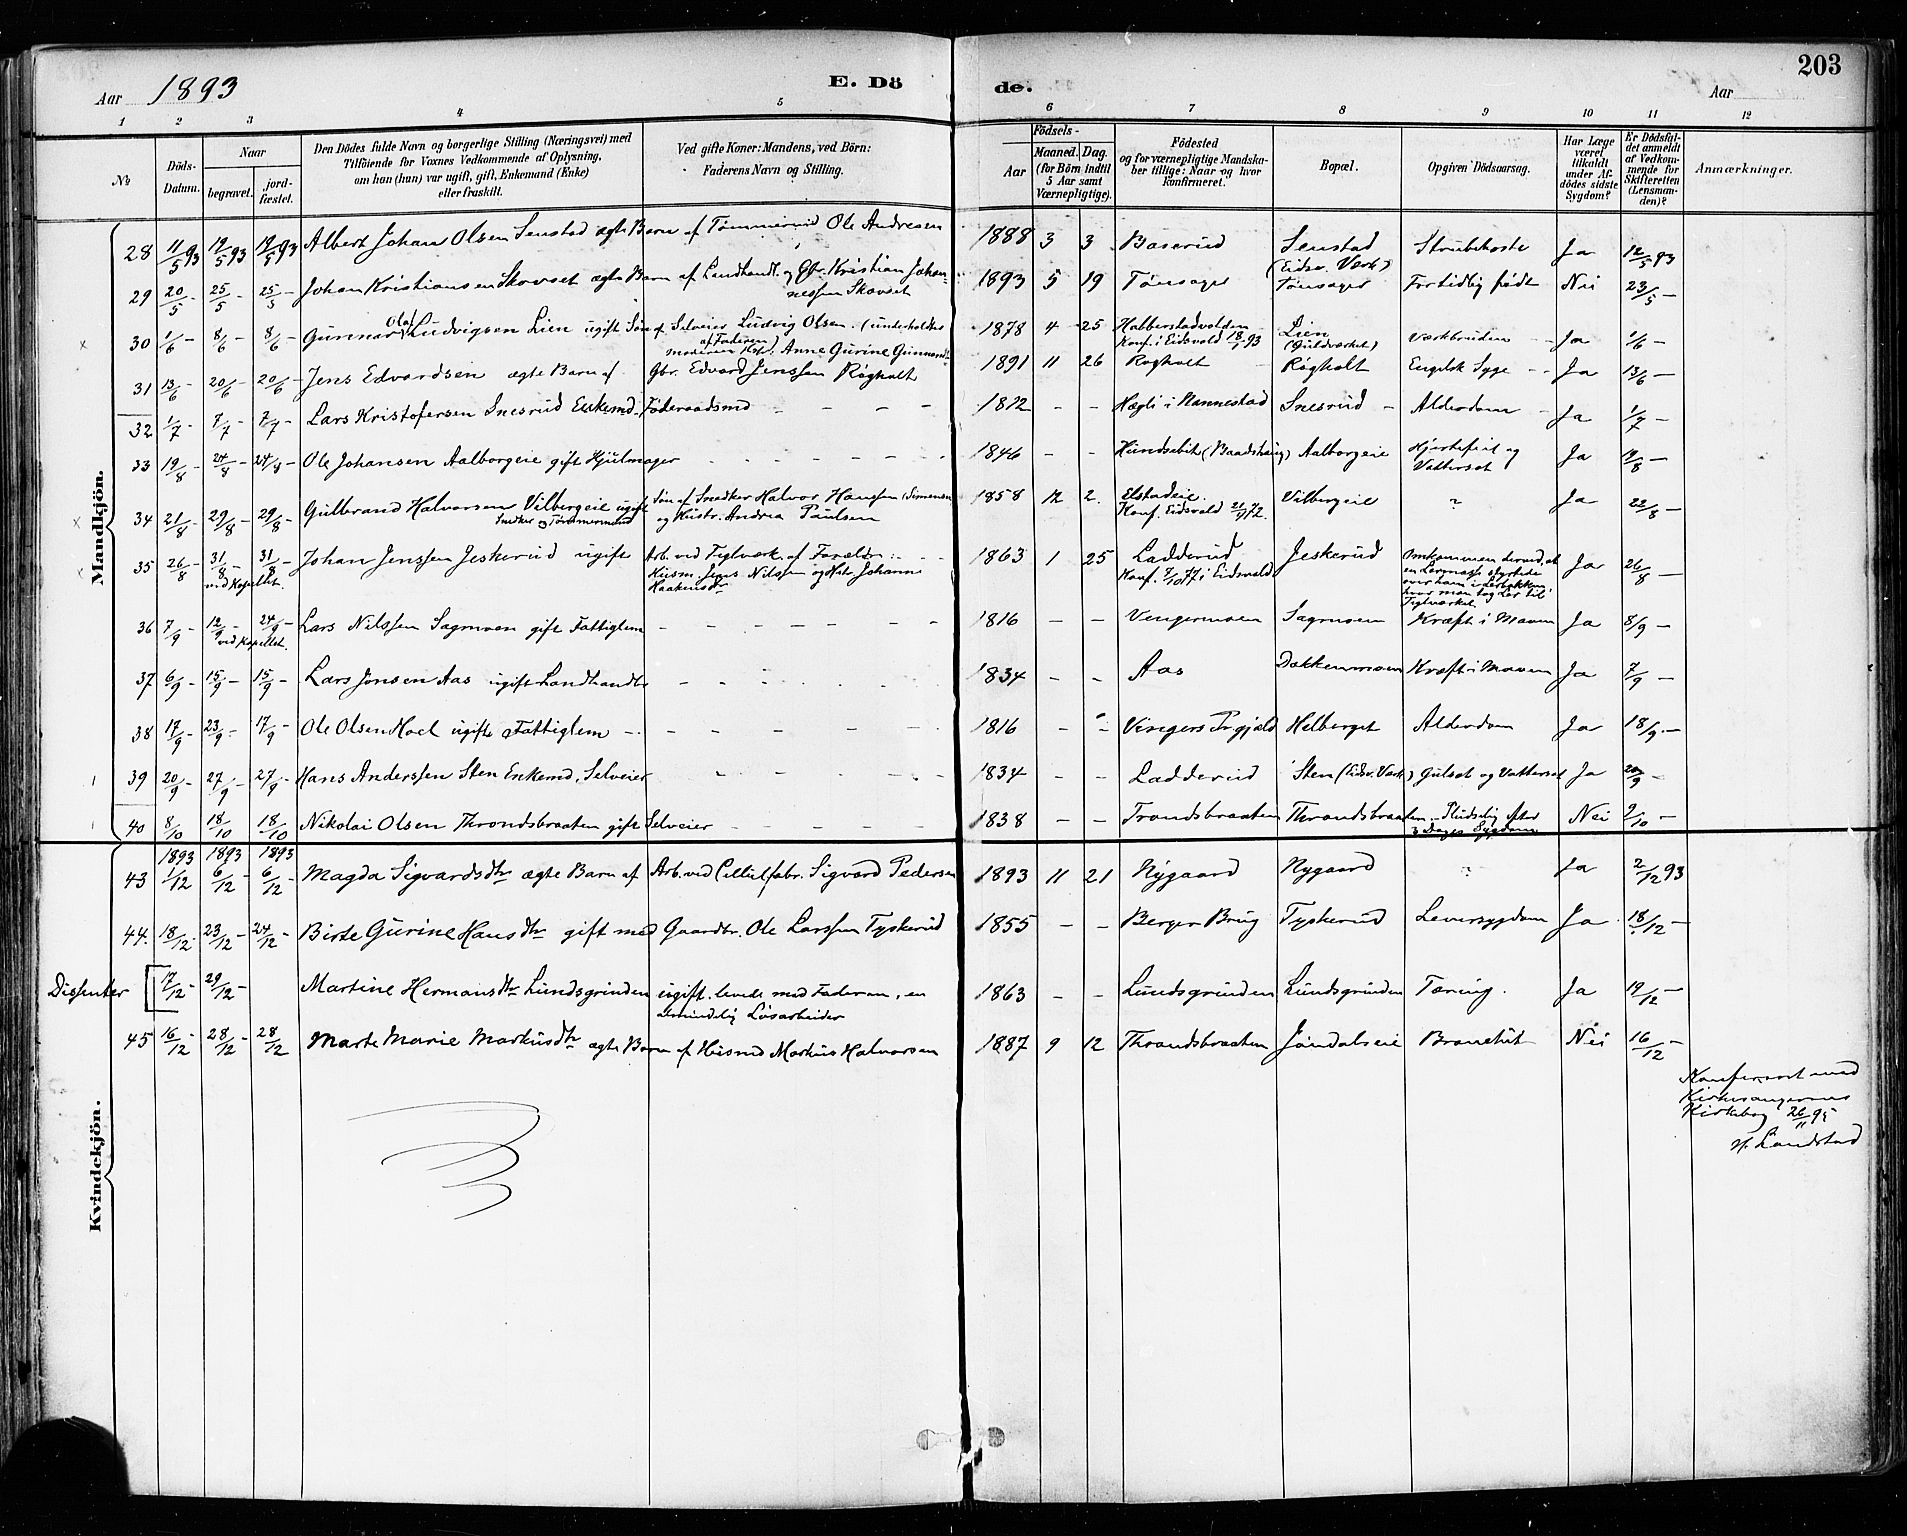 203
Aar 1893
E. Döde.
Aar
1 2 3 4 5 6 7 8 9 10 11 12
№
Döds-Datum.
Naar
begravet.
jordfæstet.
Den Dödes fulde Navn og borgerlige Stilling (Næringsvei) med
Tilföiende for Voxnes Vedkommende af Oplysning,
om han (hun) var ugift, gift, Enkemand (Enke)
eller fraskilt.
Ved gifte Koner: Mandens, ved Börn:
Faderens Navn og Stilling.
Födsels-
Aar
Maaned. Dag.
(for Börn indtil
5 Aar samt
Værnepligtige).
Födested
og for værnepligtige Mandska-
ber tillige: Naar og hvor
konfirmeret.
Bopæl.
Opgiven Dödsaarsag.
Har Læge
været
tilkaldt
under Af-
dödes sidste
Sygdom?
Er Dödsfal-
det anmeldt
af Vedkom-
mende for
Skifteretten
(Lensman-
den)?
Anmærkninger.
Mandkjön.
28 11/5 93 19/5 93 19/5 93 Albert Johan Olsen Senstad ægte Barn af Tømmermd Ole Andresen 1888 3 3 Baserud Senstad (Eidsv. Værk) Strubehoste Ja 12/5 93
29 20/5 - 25/5 - 25/5 - Johan Kristiansen Skovset ægte Barn af Landhandl. og Gbr. Kristian Johannessen Skovset 1893 5 19 Tønsager Tønsager Fortidlig født Nei 23/5 -
30 1/6 - 8/6 - 8/6 - Gunnar Olaf Ludvigsen Lien ugift Søn af Selveier Ludvig Olsen. (underholdes af Faderen) moderen Anne Gurine Gunnarsdt 1878 4 25 Habberstadvolden Konf. i Eidsvold 93 Lien (Guldværket) Ja 1/6 -
31 13/6 - 20/6 - 20/6 - Jens Edvardsen ægte Barn af Gbr. Edvard Jenssen Røgholt 1891 11 26 Røgholt Røgholt Engelsk Syge - Ja 13/6 -
32 1/7 - 7/7 - 7/7 - Lars Kristofersen Snesrud Enkemd. Føderaadsmd - - - - 1812 - - Hægli i Nannestad Snesrud - Alderdom - Ja 1/7 -
33 19/8 - 24/8 - 24/8 - Ole Johansen Aalborgeie gift Hjulmager - - - - 1846 - - Hundsebit (Baadshaug) Aalborgeie Hjertefeil og Vattersot Ja 19/8 -
34 21/8 - 29/8 - 29/8 - Gulbrand Halvorsen Vilbergeie ugift Snedker og Tømmermand Søn af Snedker Halvor Hanssen (Simensen og Hustr. Andrea Paulsen 1858 12 2. Elstadeie. Konf. Eidsvold 72. Vilbergeie ? Ja 22/8 -
35 26/8 - 31/8 - 31/8 - ved Kapellet. Johan Jenssen Jeskerud ugift Arb. ved Teglværk. af Foræld: Husm. Jens Nilssen og Hst. Johanne Haakensdt 1863 1 25 Ladderud Konf. 7/10 77 i Eidsvold Jeskerud Omkommen derved, at en Lermasse styrtede over ham i Lerbakken hvor man tog Ler til Teglværket. Ja 26/8 -
36 7/9 - 12/9 - 24/9 - ved Kapellet. Lars Nilssen Sagmoen gift Fattiglem - - - - 1816 - - Vengermoen Sagmoen Kræft i Maven Ja 8/9 -
37 6/9 - 15/9 - 15/9 - Lars Jonsen Aas ugift Landhandl. - - - - 1834 - - Aas Dokkenmoen Kræft i Maven Ja 7/9 -
38 17/9 - 23/9 - 17/9 - Ole Olsen Hoel ugift Fattiglem - - - - 1816 - - Vingers Prgjæld Helberget Alderdom Ja 18/9 -
39 20/9 - 27/9 - 27/9 - Hans Anderssen Sten Enkemd, Selveier - - - - 1834 - - Ladderud Sten (Eidsv. Værk) Gulsot og Vattersot Ja 20/9 -
40 8/10 18/10 18/10 Nikolai Olsen Throndsbraaten gift Selveier - - - - 1838 - - Trondsbraaten Throndsbraaten Pludselig efter 3 Dages Sygdom Nei 9/10 -
Kvindekjön.
1893 1893 1893
43 1/12 6/12 - 6/12 - Magda Sigvardsdtr ægte Barn af Arb. ved Cellulfabr. Sigvard Pedersen 1893 11 21 Nygaard Nygaard ? Ja 2/12 93
44. 18/12. 23/12 - 24/12 - Birte Gurine Hansdtr gift med Gaardbr. Ole Larssen Tyskerud 1855 - - Berger Brug Tyskerud Leversygdom Ja 18/12 -
Dissenter 17/12 - 29/12 - Martine Hermansdtr Lundsgrinden ugift. levede med Faderen, en almindelig Løsarbeider 1863 - - Lundsgrinden Lundsgrinden Tæring. Ja 19/12 -
45 16/12 - 28/12 - 28/12 Marte Marie Markusdtr ægte Barn af Husmd Markus Halvorsen 1887 9 12 Throndsbraaten Jøndalseie Bronchit Nei 16/12 -
Konfereret med
Kirkesangerens
Kirkebog 26/11 95
H. Landstad